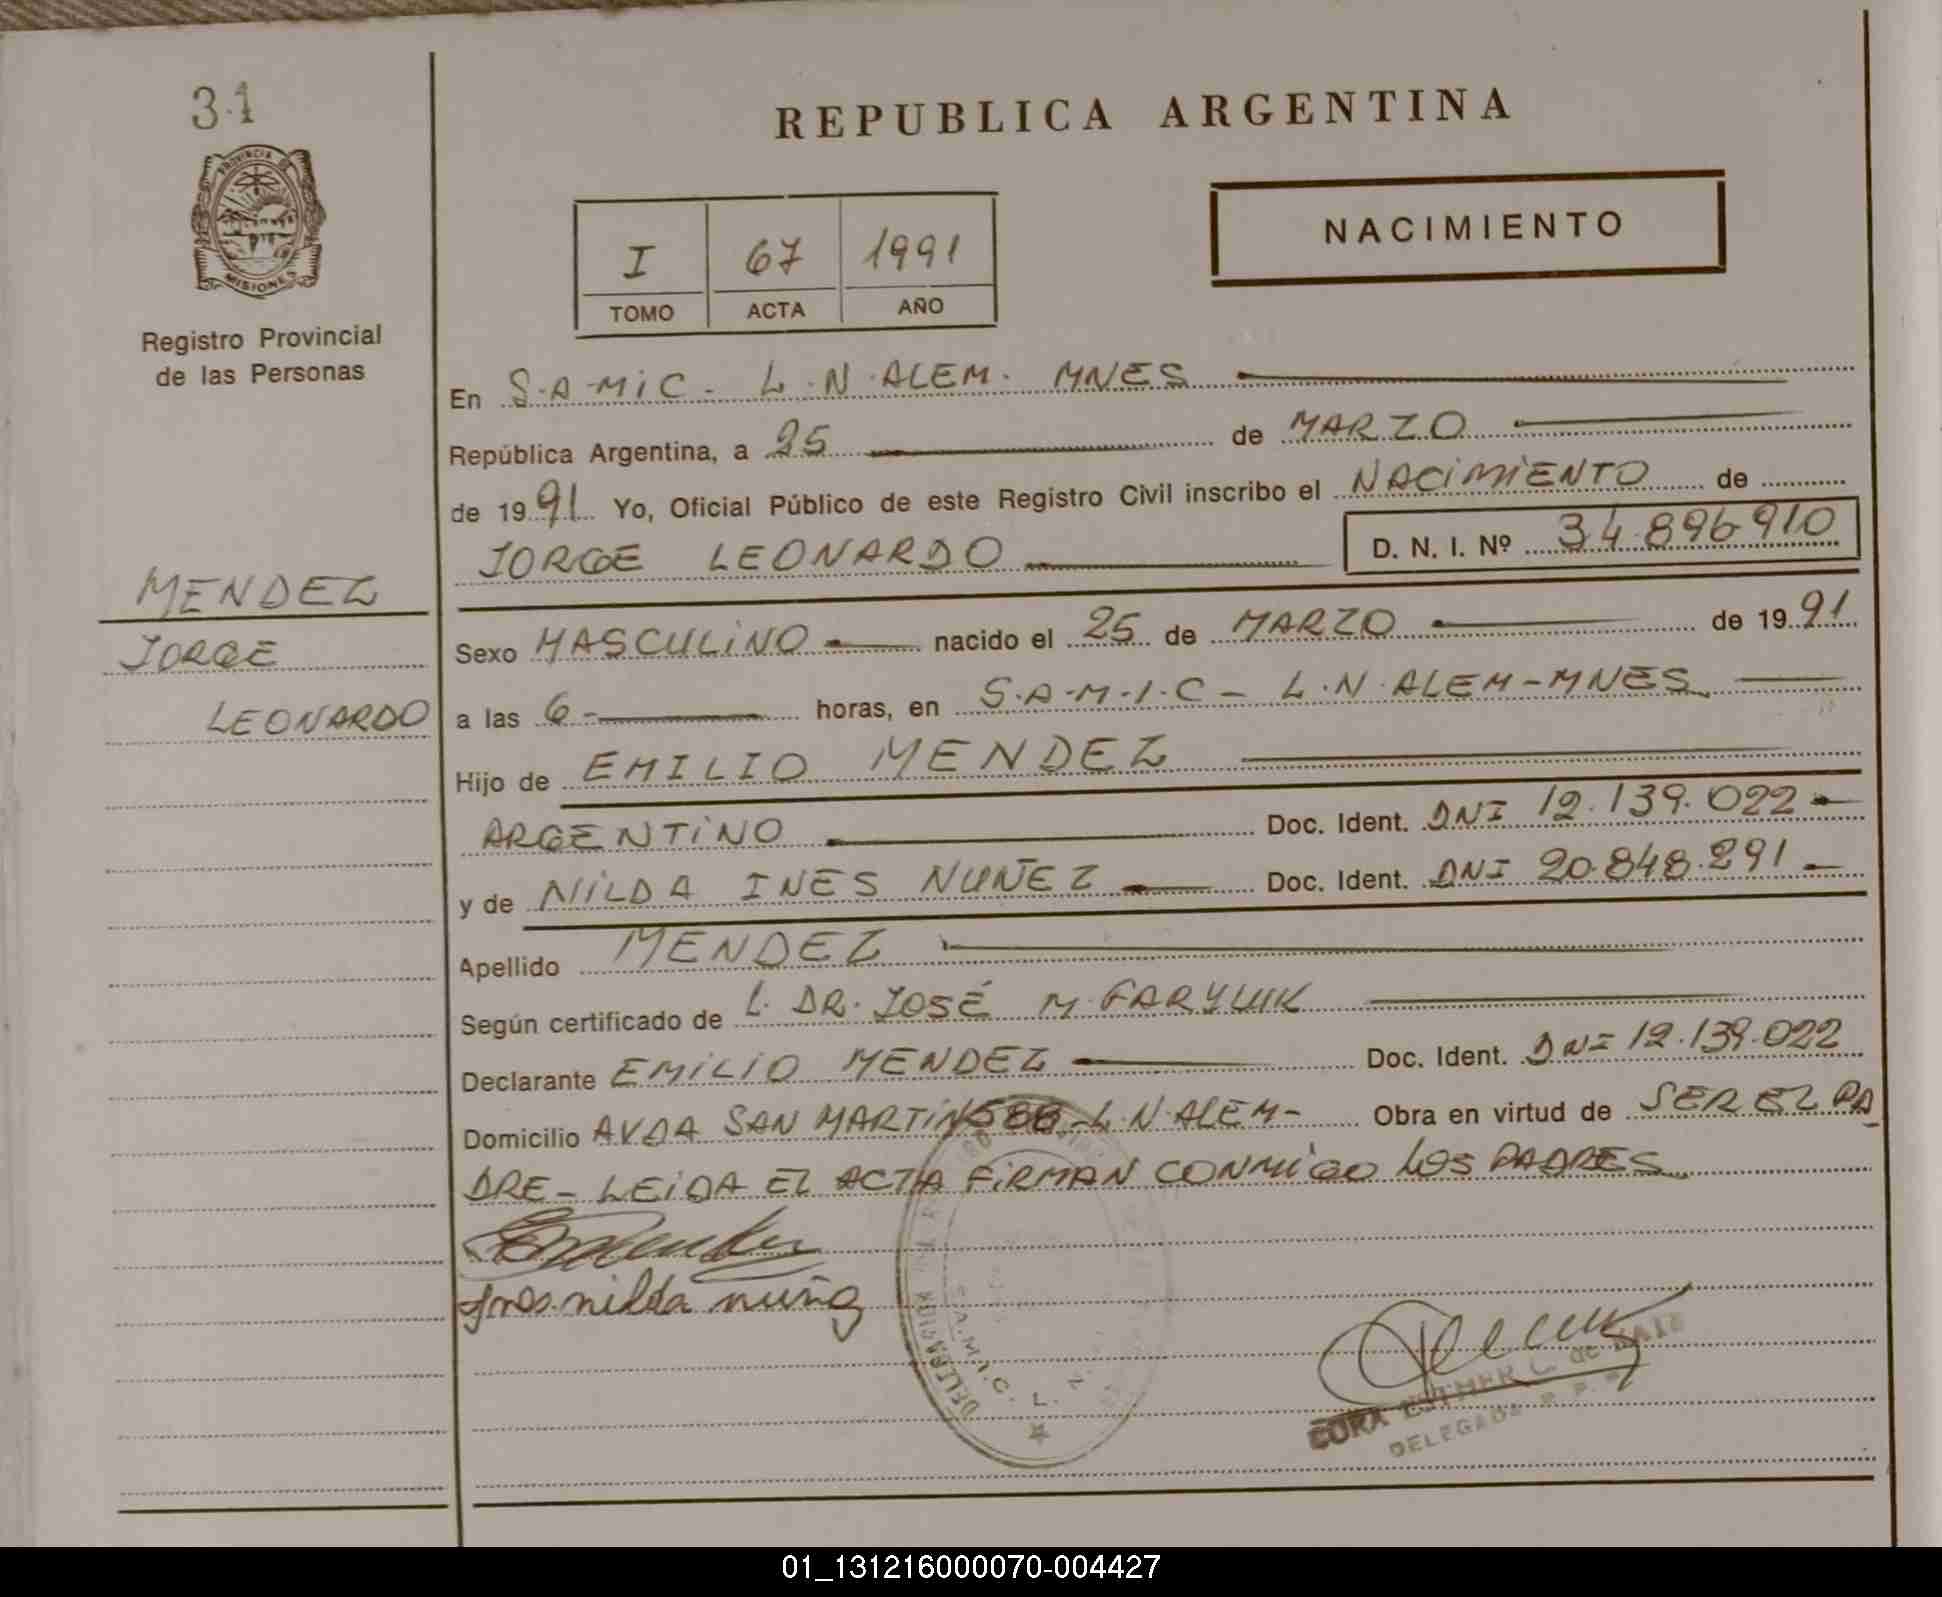 31
PROVINCIA DE
MISIONES
Registro Provincial
de las Personas
MENDEZ
JORGE
LEONARDO
REPUBLICA ARGENTINA
I 67 1991
TOMO ACTA AÑO
NACIMIENTO
En S.A.MiC. L.N.ALEM. MNES
República Argentina, a 25 de MARZO
de 1991 Yo, Oficial Público de este Registro Civil inscribo el NACIMIENTO de
JORGE LEONARDO D. N. I. Nº 34.896.910
Sexo MASCULINO nacido el 25 de MARZO de 1991
a las 6 horas, en S.A.M.I.C - L.N.ALEM-MNES
Hijo de EMILIO MENDEZ
ARGENTINO Doc. Ident. DNI 12.139.022
y de NILDA INES NUÑEZ Doc. Ident. DNI 20.848.291
Apellido MENDEZ
Según certificado de L. DR. JOSÉ M.
Declarante EMILIO MENDEZ Doc. Ident. DNI 12.139.022
Domicilio AVDA SAN MARTIN 588 - L.N.ALEM- Obra en virtud de SER EL PA
DRE - LEIDA EL ACTA FIRMAN CONMIGO LOS PADRES
Ines nilda nuñez
S.A.M.I.C. L.
ESTHER C. de
DELEGADA R. P. P.
01_131216000070-004427